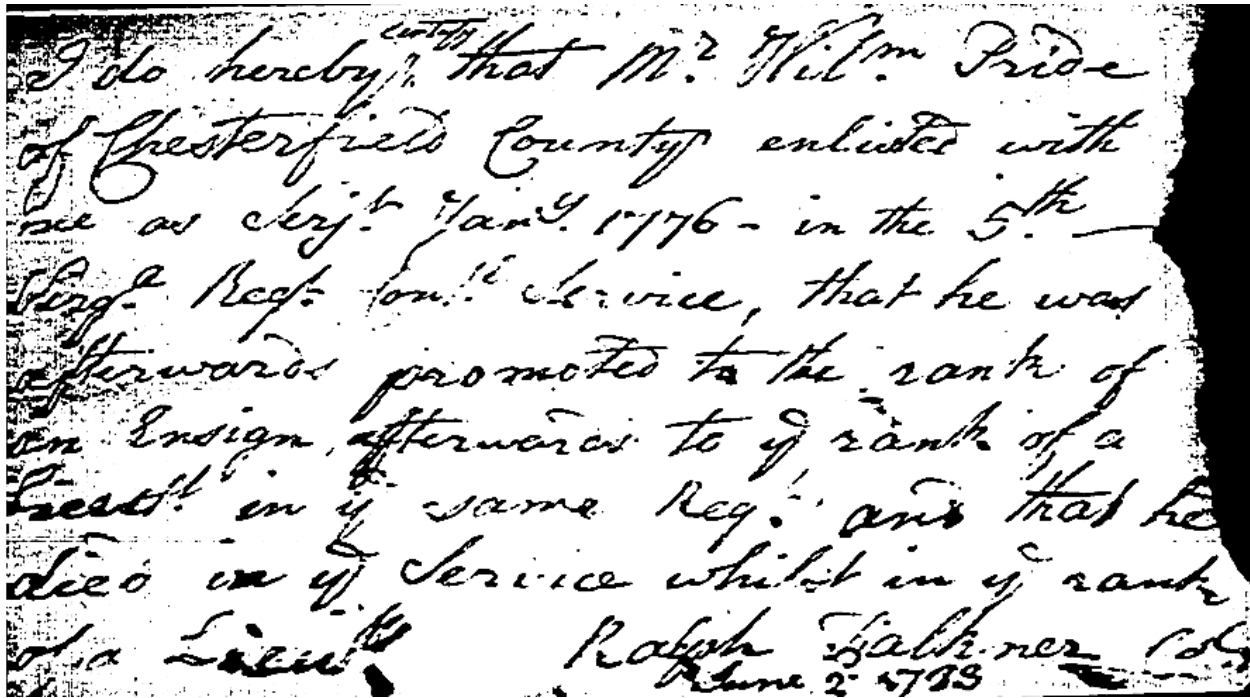 I do hereby certify that Mr. Wilm. Pride
of Chesterfield County enlisted with
me as Serjt. Jany. 1776 - in the 5th.
Virga. Regt. Contl. Service, that he was
afterwards promoted to the rank of
an Ensign, afterwards to ye rank of a
Lieutt. in ye same Regt. and that he
died in ye Service whilst in ye rank
of a Lieutt. Ralph Falkner Col.
June 2 1783